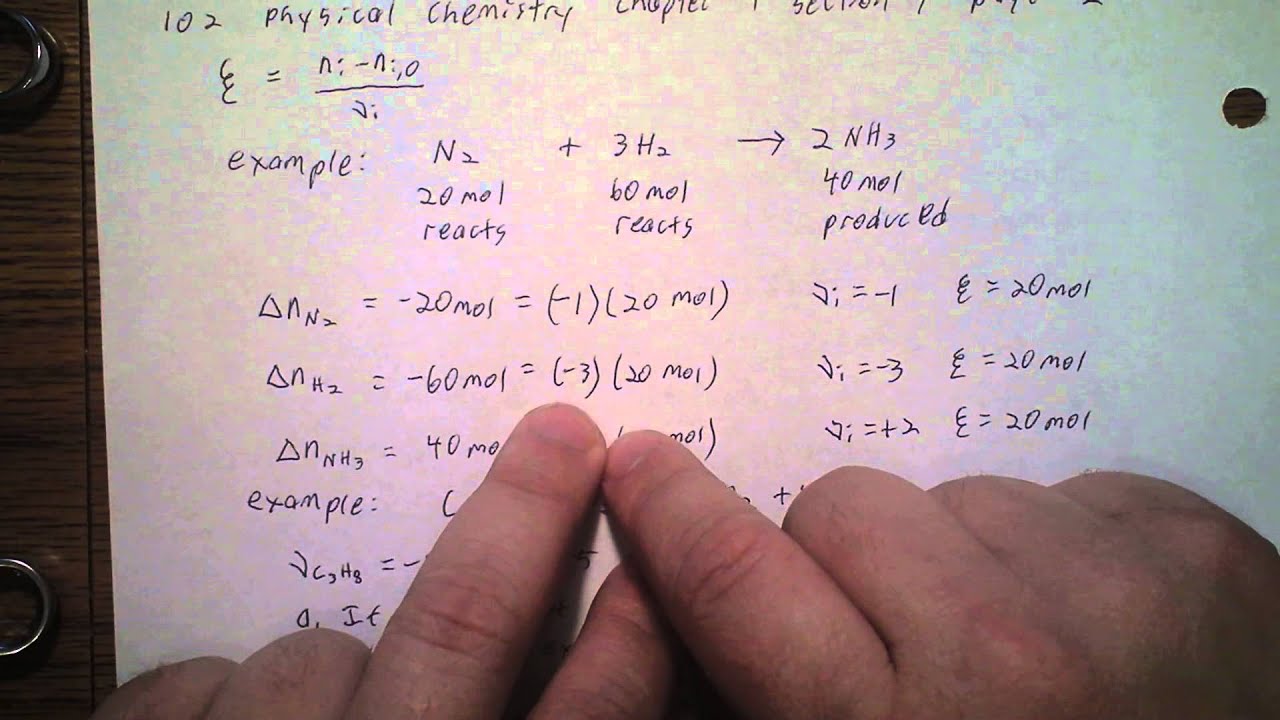 102 physical chemistry chapter section page 2
ξ = (ni - ni,0) / νi
example: N2 + 3H2 → 2NH3
20mol 60mol 40mol
reacts reacts produced
ΔnN2 = -20mol = (-1)(20 mol) νi = -1 ξ = 20mol
ΔnH2 = -60mol = (-3)(20 mol) νi = -3 ξ = 20mol
ΔnNH3 = 40 mol) νi = +2 ξ = 20mol
example: +
νC3H8 = - 5
a. It